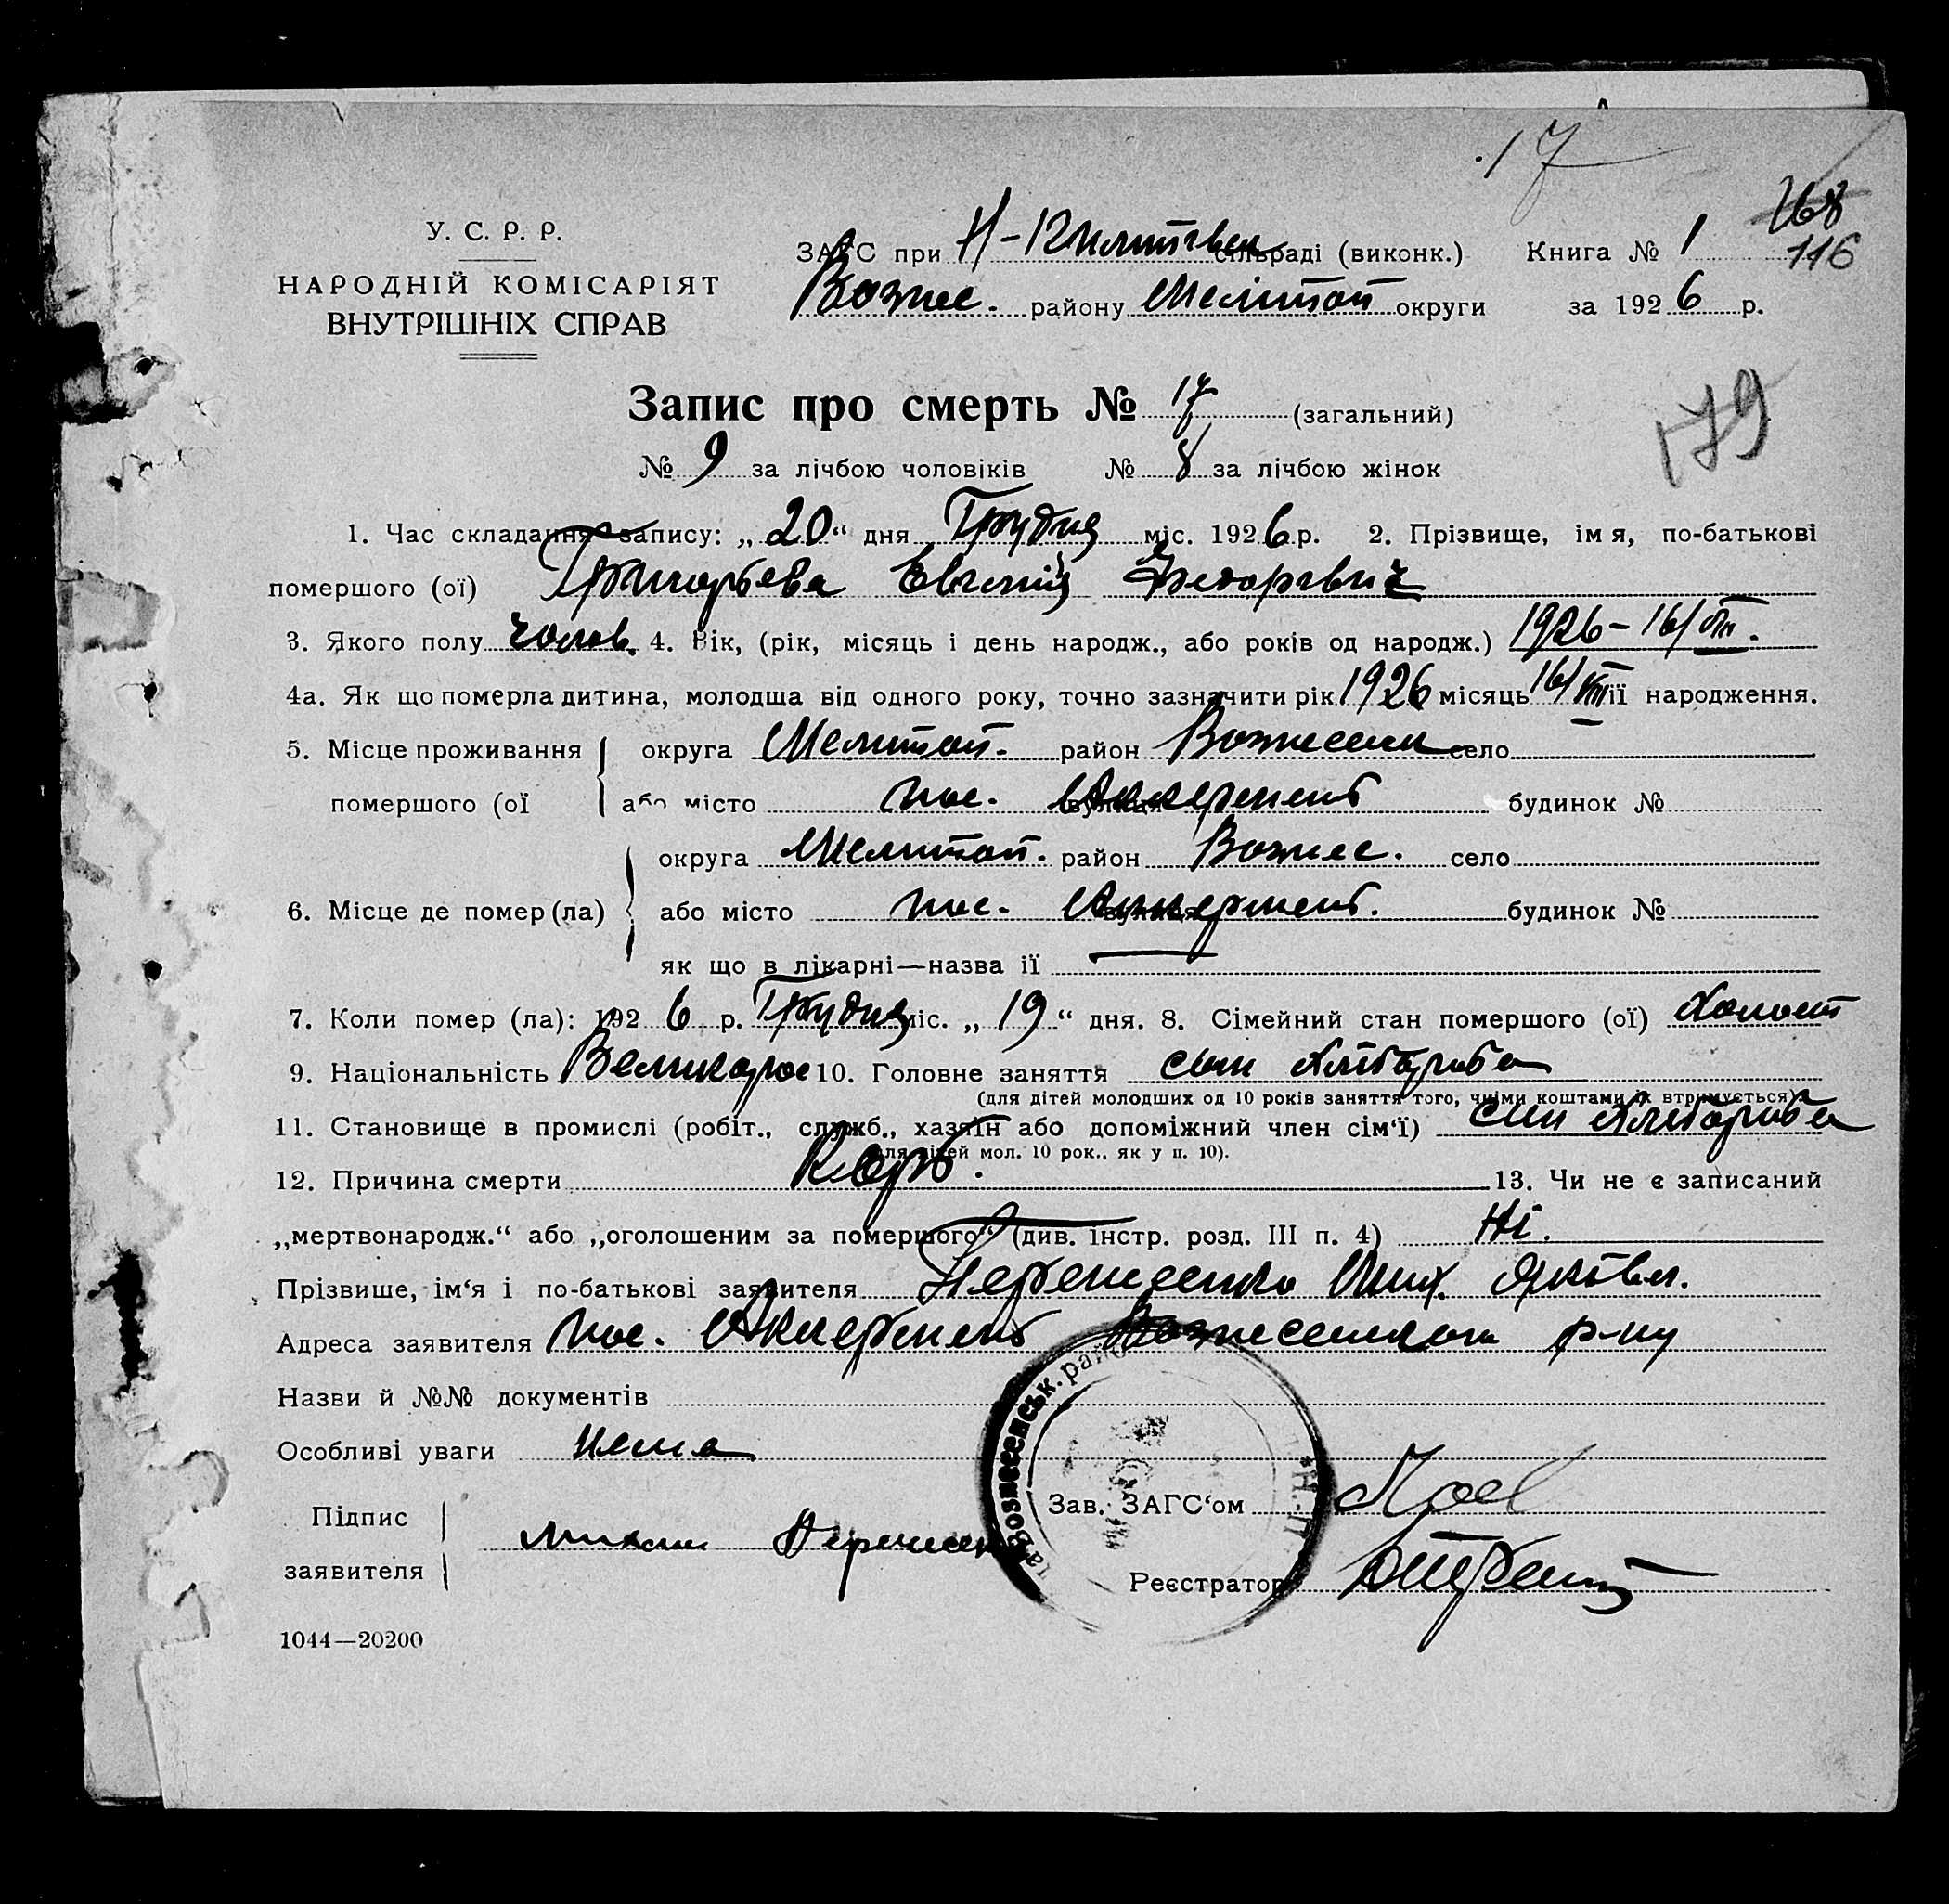 17
168
У. С. Р. Р.
НАРОДНІЙ КОМІСАРІЯТ
ВНУТРІШНІХ СПРАВ
ЗАГС при Н- сільраді (виконк.) Книга № 1 116
Вознес. району Мелітоп округи за 1926 р.
Запис про смерть № 17 (загальний)
179
№ 9 за лічбою чоловіків № 8 за лічбою жінок
1. Час складання запису: „20“ дня Грудня міс. 1926 р. 2. Прізвище, імя, по-батькові
помершого (ої) Григорьева Евгений Федорович
3. Якого полу чолов. 4. Вік, (рік, місяць і день народж., або років од народж.) 1926-16/VIII.
4а. Як що померла дитина, молодша від одного року, точно зазначити рік 1926 місяць 16/VIII її народження.
5. Місце проживання округа Мелитоп. район Вознесенк село
помершого (ої або місто пос. Аккермень будинок №
округа Мелитоп. район Вознес. село
6. Місце де помер(ла) або місто пос. Аккермень. будинок №
як що в лікарні—назва ії
7. Коли помер (ла): 1926 р. Грудня міс. „19“ дня. 8. Сімейний стан помершого (ої) Холост
9. Національність Великорос 10. Головне заняття син хлібороба
(для дітей молодших од 10 років заняття того, чиїми коштами їх втримується)
11. Становище в промислі (робіт., служб., хазяїн або допоміжний член сім‘ї) син хлібороба
для дітей мол. 10 рок., як у п. 10).
12. Причина смерти Корь. 13. Чи не є записаний
„мертвонародж.“ або „оголошеним за помершого“ (див. інстр. розд. III п. 4) Ні.
Прізвише, ім‘я і по-батькові заявителя Мих. Яковл.
Адреса заявителя пос. Аккермень Вознесенского р-ну
Назви й №№ документів
Особливі уваги нема
Вознесенськ. райо
Підпис
заявителя
Зав. ЗАГС‘ом
Реєстратор
1044—20200